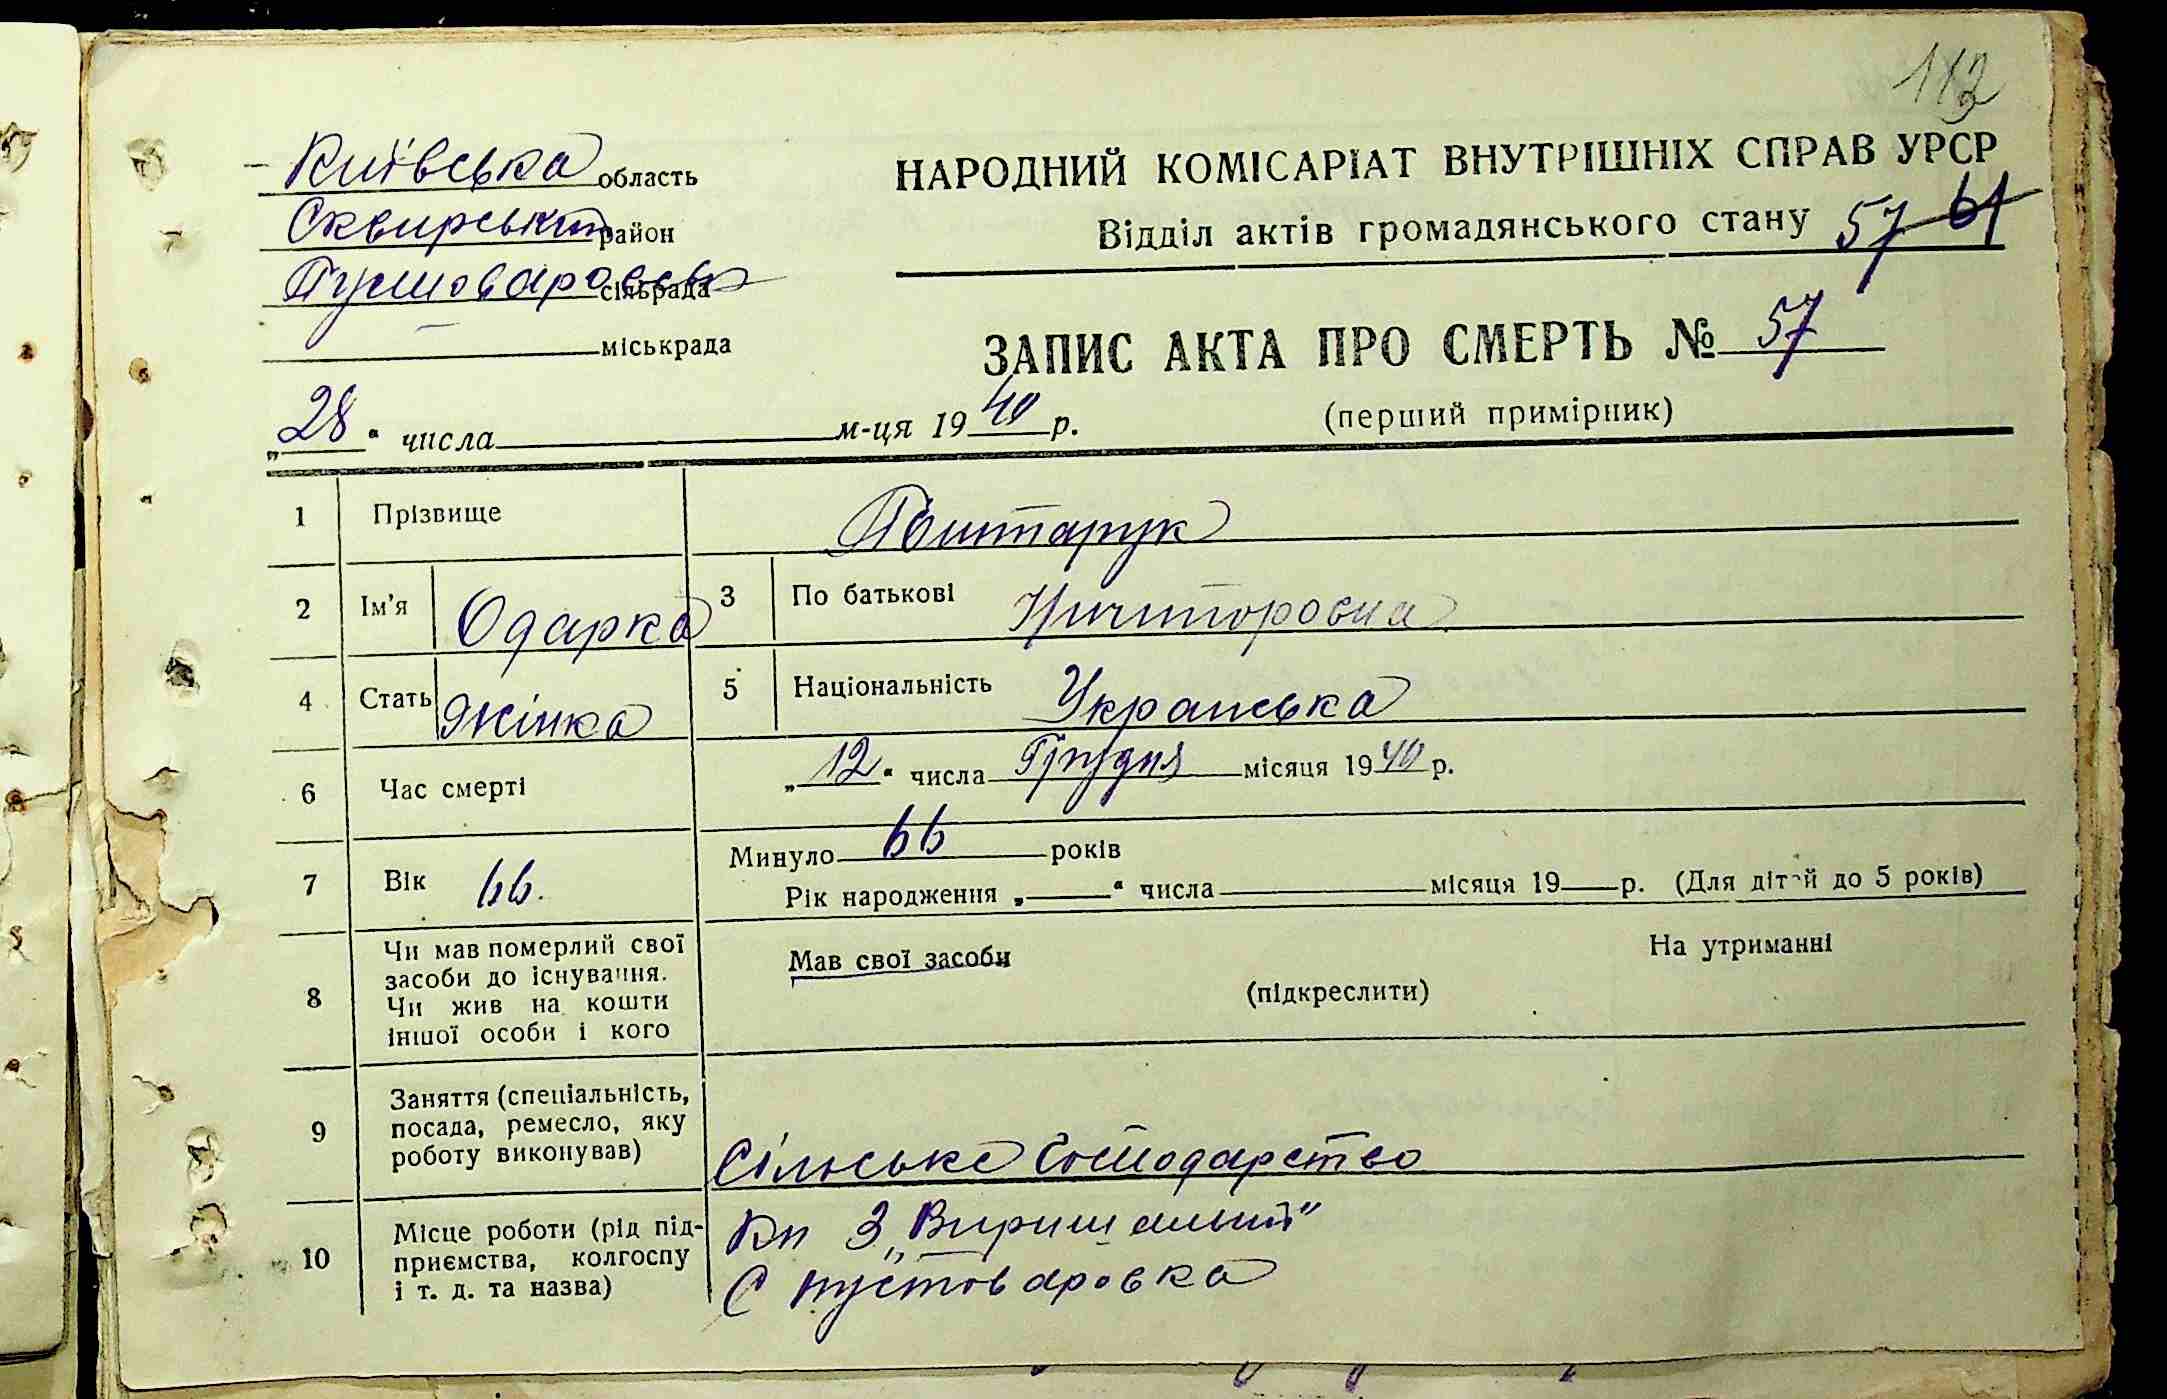 112
Київська область
Сквирський район
Пустоваровська сільрада
міськрада
НАРОДНИЙ КОМІСАРІАТ ВНУТРІШНІХ СПРАВ УРСР
Відділ актів громадянського стану 57 61
ЗАПИС АКТА ПРО СМЕРТЬ № 57
(перший примірник)
„28“ числа м-ця 1940 р.
1 Прізвище
2 Ім'я Одарка 3 По батькові
4 Стать Жінка 5 Національність Українська
6 Час смерті „12“ числа Грудня місяця 1940 р.
7 Вік 66. Минуло 66 років
Рік народження „ “ числа місяця 19 р. (Для дітей до 5 років)
8 Чи мав померлий свої засоби до існування. Чи жив на кошти іншої особи і кого
Мав свої засоби На утриманні
(підкреслити)
9 Заняття (спеціальність, посада, ремесло, яку роботу виконував) Сільське Господарство
10 Місце роботи (рід підприємства, колгоспу і т. д. та назва)
З „Вирішальний“
С пустоваровка